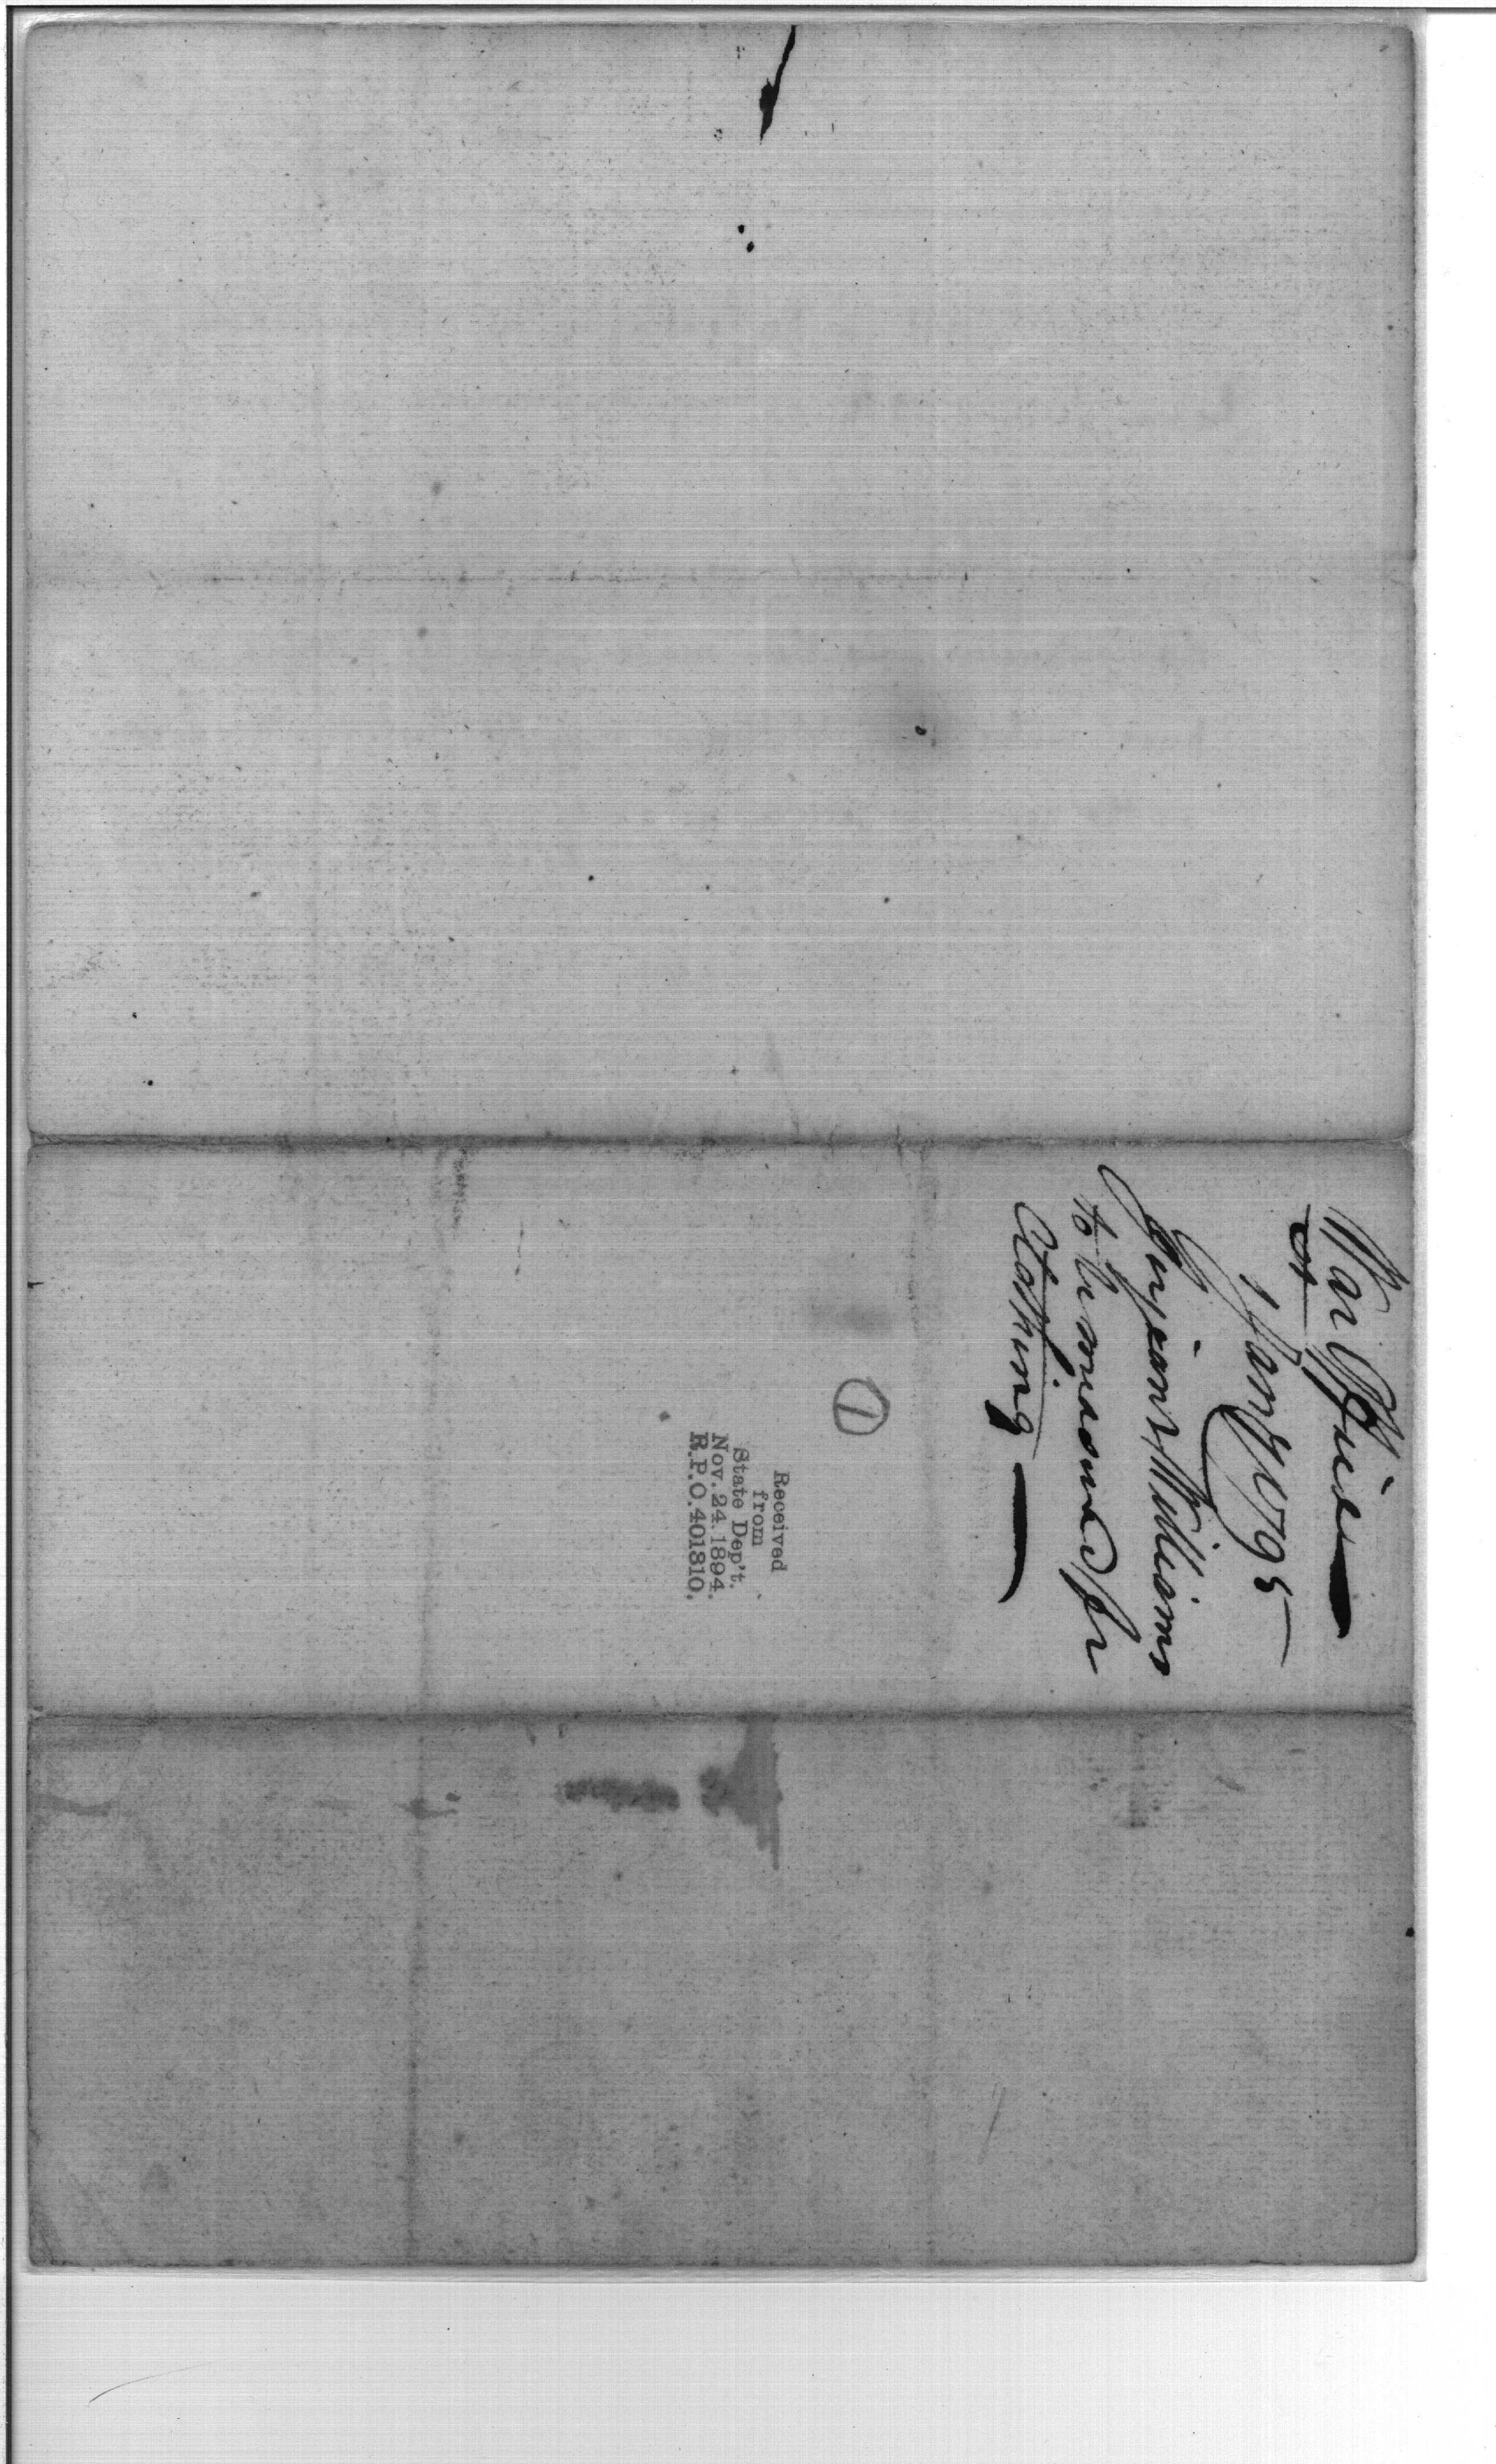 War Office
1 Jany 1795
Serjeant Williams
to be measured for
Clothing
1
Received
from
State Dep't.
Nov. 24. 1894.
R.P.O. 401310.